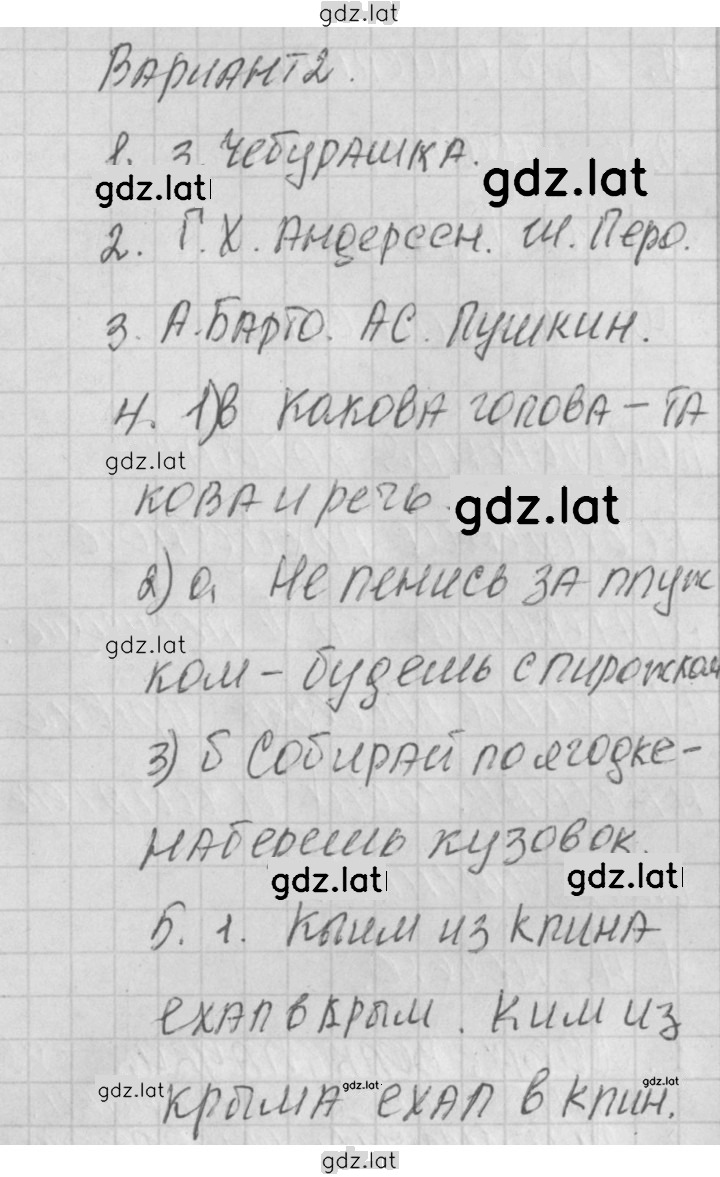 gdz.lat
Вариант 2.
1. 3. Чебурашка.
gdz.lat gdz.lat
2. Г.Х. Андерсен. Ш. Перо.
3. А. Барто. А С. Пушкин.
4. 1) в Какова голова – та
gdz.lat
кова и речь. gdz.lat
2) а Не ленись за плуж
gdz.lat
ком – будешь с пирожком
3) б Собирай по ягодке –
наберешь кузовок.
gdz.lat gdz.lat
5. 1. Клим из клина
ехал в Крым. Ким из
gdz.lat gdz.lat gdz.lat
Крыма ехал в клин.
gdz.lat